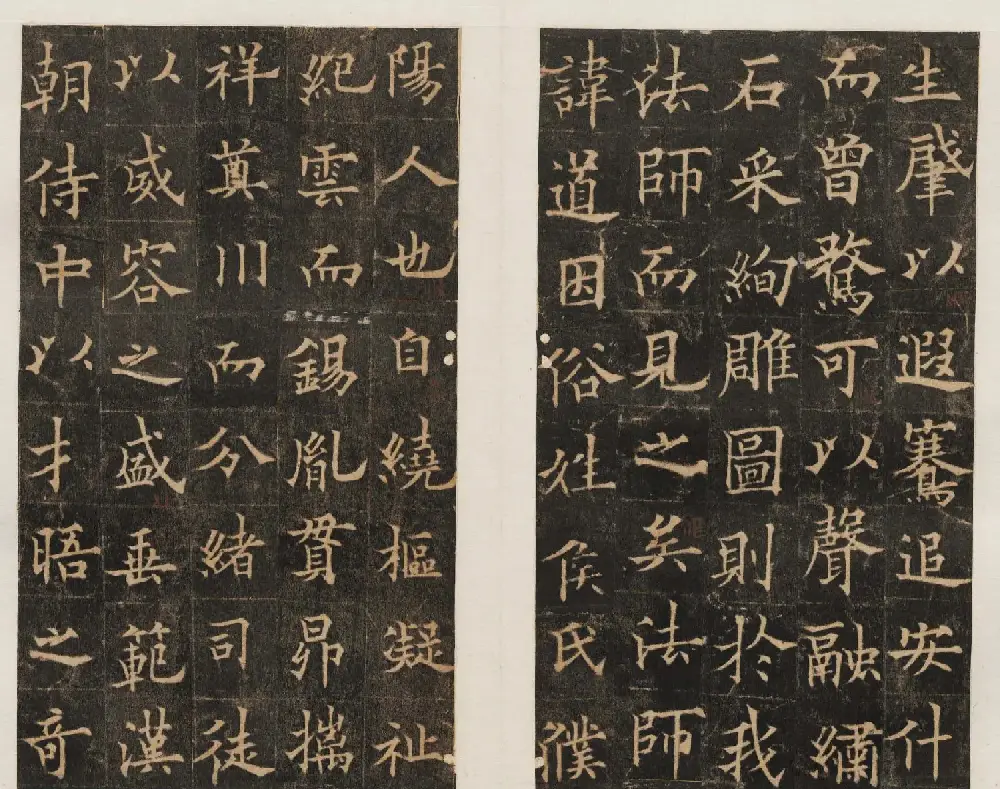 生肇以遐鶱追安什
而曾騖可以聲融繡
石采絢雕圖則於我
法師而見之矣法師
諱道因俗姓侯氏濮
陽人也自繞樞凝祉
紀雲而錫胤貫昴摛
祥奠川而分緒司徒
以威容之盛垂範漢
朝侍中以才晤之奇